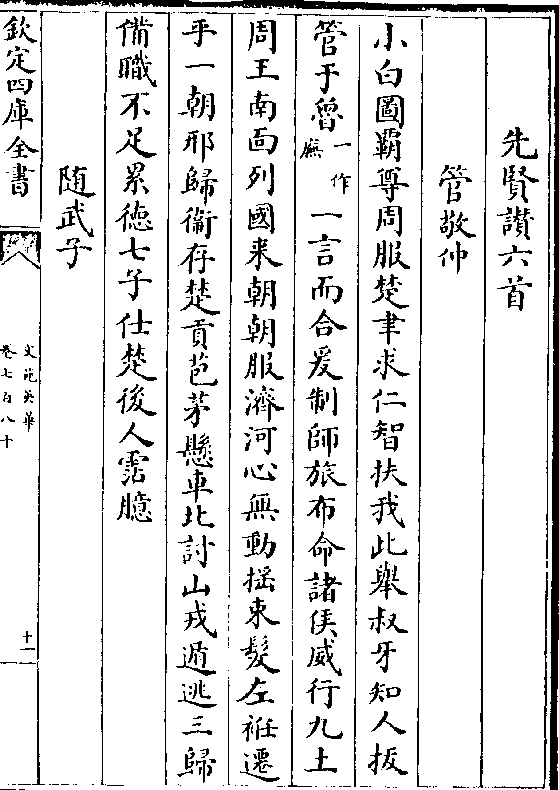 先賢讃六首
管敬仲
小白圖霸尊周服楚聿求仁智扶我此舉叔牙知人拔
管于魯一作廡一言而合爰制師旅布命諸侯威行九土
周王南面列國来朝朝服濟河心無動揺束髮左袵遷
乎一朝邢歸衞存楚貢苞茅懸車北討山戎遁逃三歸
備職不足累徳七子仕楚後人霑臆
随武子
欽定四庫全書
文苑英華
卷七百八十
十一